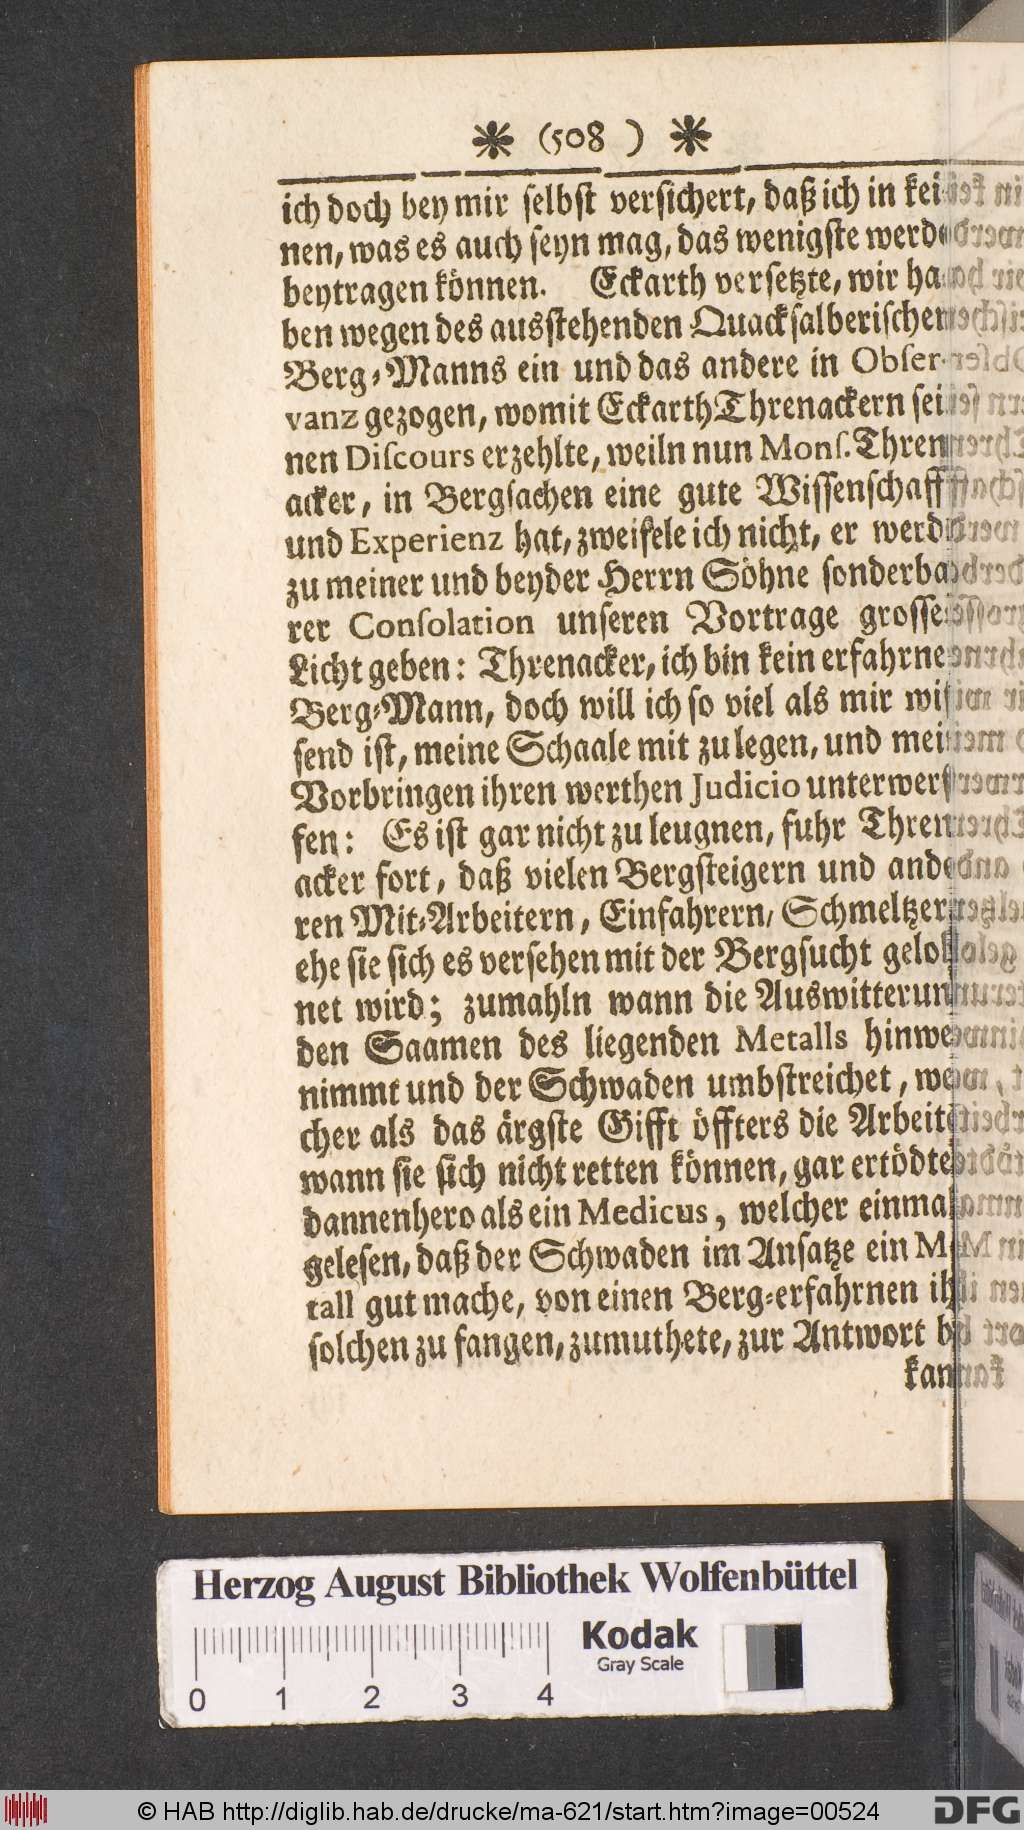 ✷ (508 ) ✷
ich doch bey mir selbst versichert, daß ich in kei-
nen, was es auch seyn mag, das wenigste werde
beytragen können. Eckarth versetzte, wir ha-
ben wegen des ausstehenden Quacksalberischen
Berg-Manns ein und das andere in Obser-
vanz gezogen, womit Eckarth Threnackern sei-
nen Discours erzehlte, weiln nun Mons. Thren-
acker, in Bergsachen eine gute Wissenschafft
und Experienz hat, zweifele ich nicht, er werde
zu meiner und beyder Herrn Söhne sonderba-
rer Consolation unseren Vortrage grosses
Licht geben: Threnacker, ich bin kein erfahrner
Berg-Mann, doch will ich so viel als mir wis-
send ist, meine Schaale mit zu legen, und mein
Vorbringen ihren werthen Judicio unterwerf-
fen: Es ist gar nicht zu leugnen, fuhr Thren-
acker fort, daß vielen Bergsteigern und ande-
ren Mit-Arbeitern, Einfahrern, Schmeltzern
ehe sie sich es versehen mit der Bergsucht geloh-
net wird; zumahln wann die Auswitterung
den Saamen des liegenden Metalls hinweg
nimmt und der Schwaden umbstreichet, wel-
cher als das ärgste Gifft öffters die Arbeiter
wann sie sich nicht retten können, gar ertödtet
dannenhero als ein Medicus, welcher einmal
gelesen, daß der Schwaden im Ansatze ein Me-
tall gut mache, von einen Berg-erfahrnen ihm
solchen zu fangen, zumuthete, zur Antwort be-
kam
Herzog August Bibliothek Wolfenbüttel
Kodak
Gray Scale
0 1 2 3 4
© HAB http://diglib.hab.de/drucke/ma-621/start.htm?image=00524
DFG